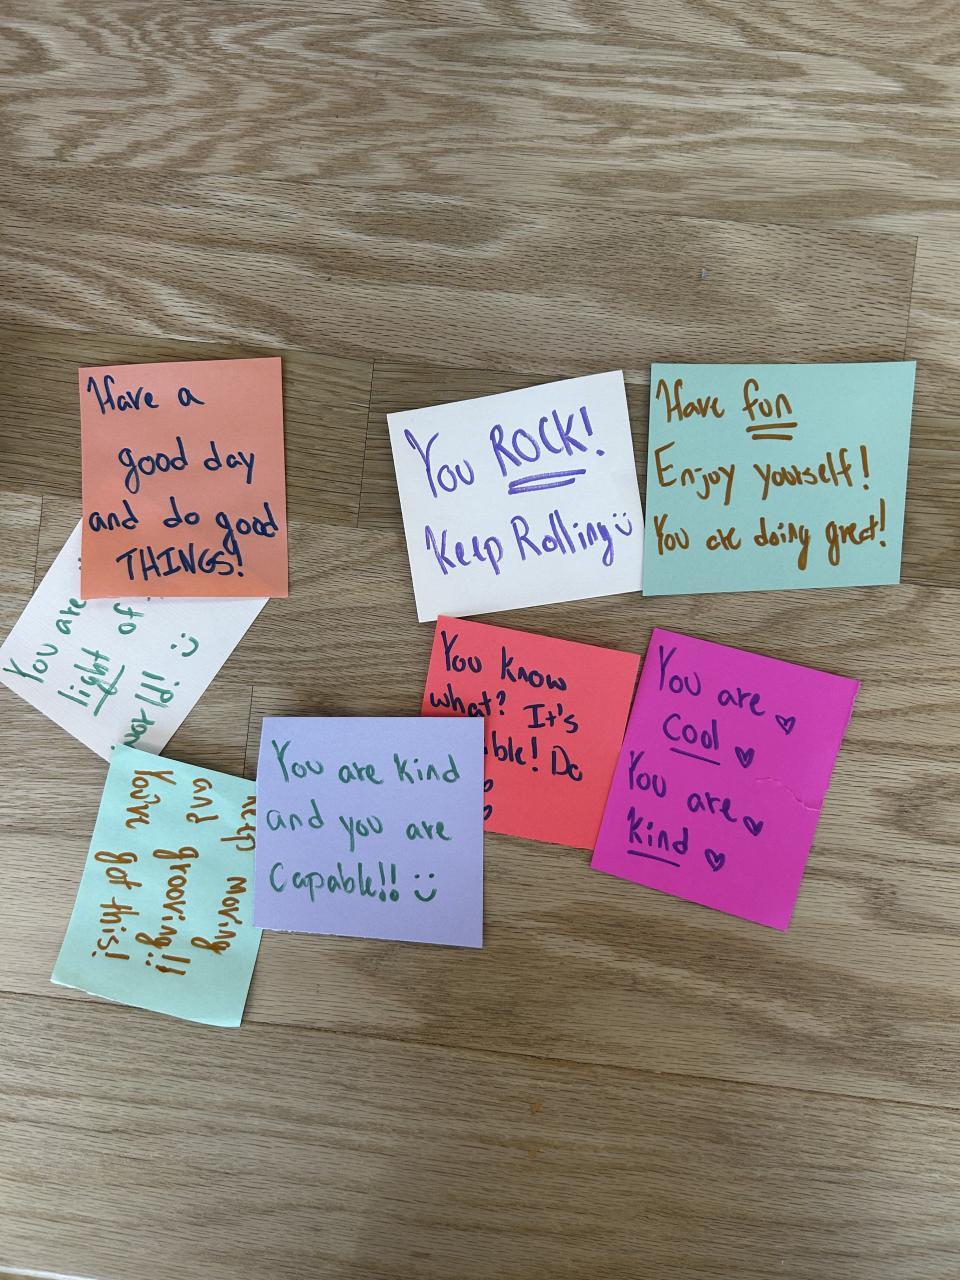 Have a
good day
and do good
THINGS!
You ROCK!
Keep Rolling
Have fun
Enjoy yourself!
You are doing great!
You are
light of
world!!
You know
what? It's
Do
You are
Cool
You are
Kind
You are Kind
and you are
Capable!!
moving
and grooving!!
You've got this!